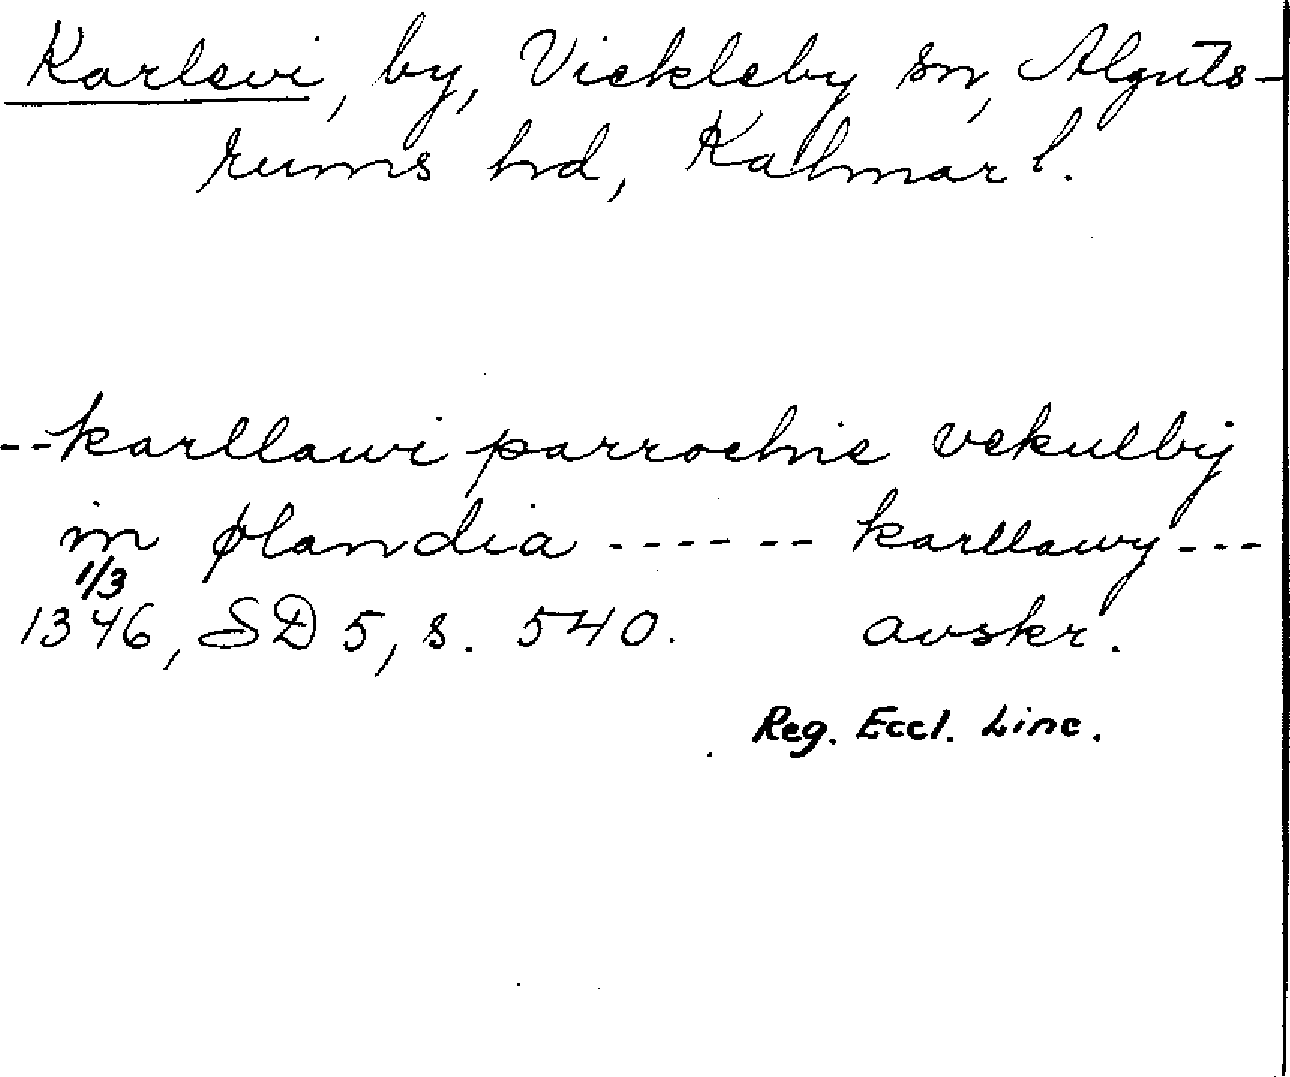 Karlevi, by, Vickleby sn, Alguts-
rums hd, Kalmar l.
--karllawi parrochie vekulbij
in ølandia ------ karllawy ---
1/3
1346, SD 5, s. 540. avskr.
Reg. Eccl. Linc.